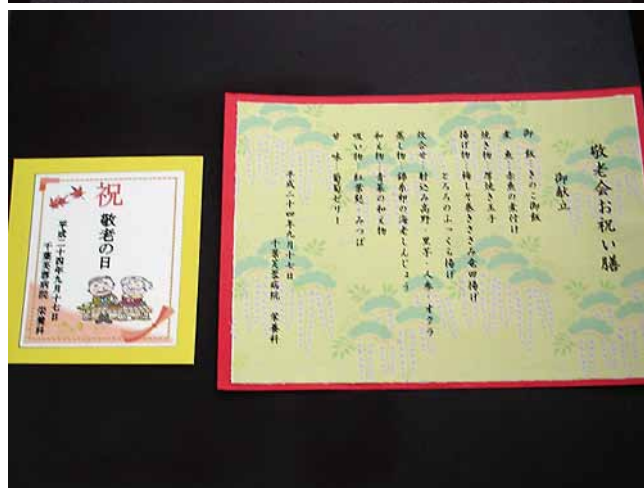 祝
敬老の日
平成二十四年九月十七日
千葉芙蓉病院 栄養科
敬老会お祝い膳
御献立
御飯 きのこ御飯
煮魚 赤魚の煮付け
焼き物 厚焼き玉子
揚げ物 梅しそ巻きささみ竜田揚げ
とろろのふっくら揚げ
炊合せ 射込み高野・里芋・人参・オクラ
蒸し物 錦糸卵の海老しんじょう
和え物 青菜の和え物
吸い物 紅葉麩・みつば
甘味 葡萄ゼリー
平成二十四年九月十七日
千葉芙蓉病院 栄養科